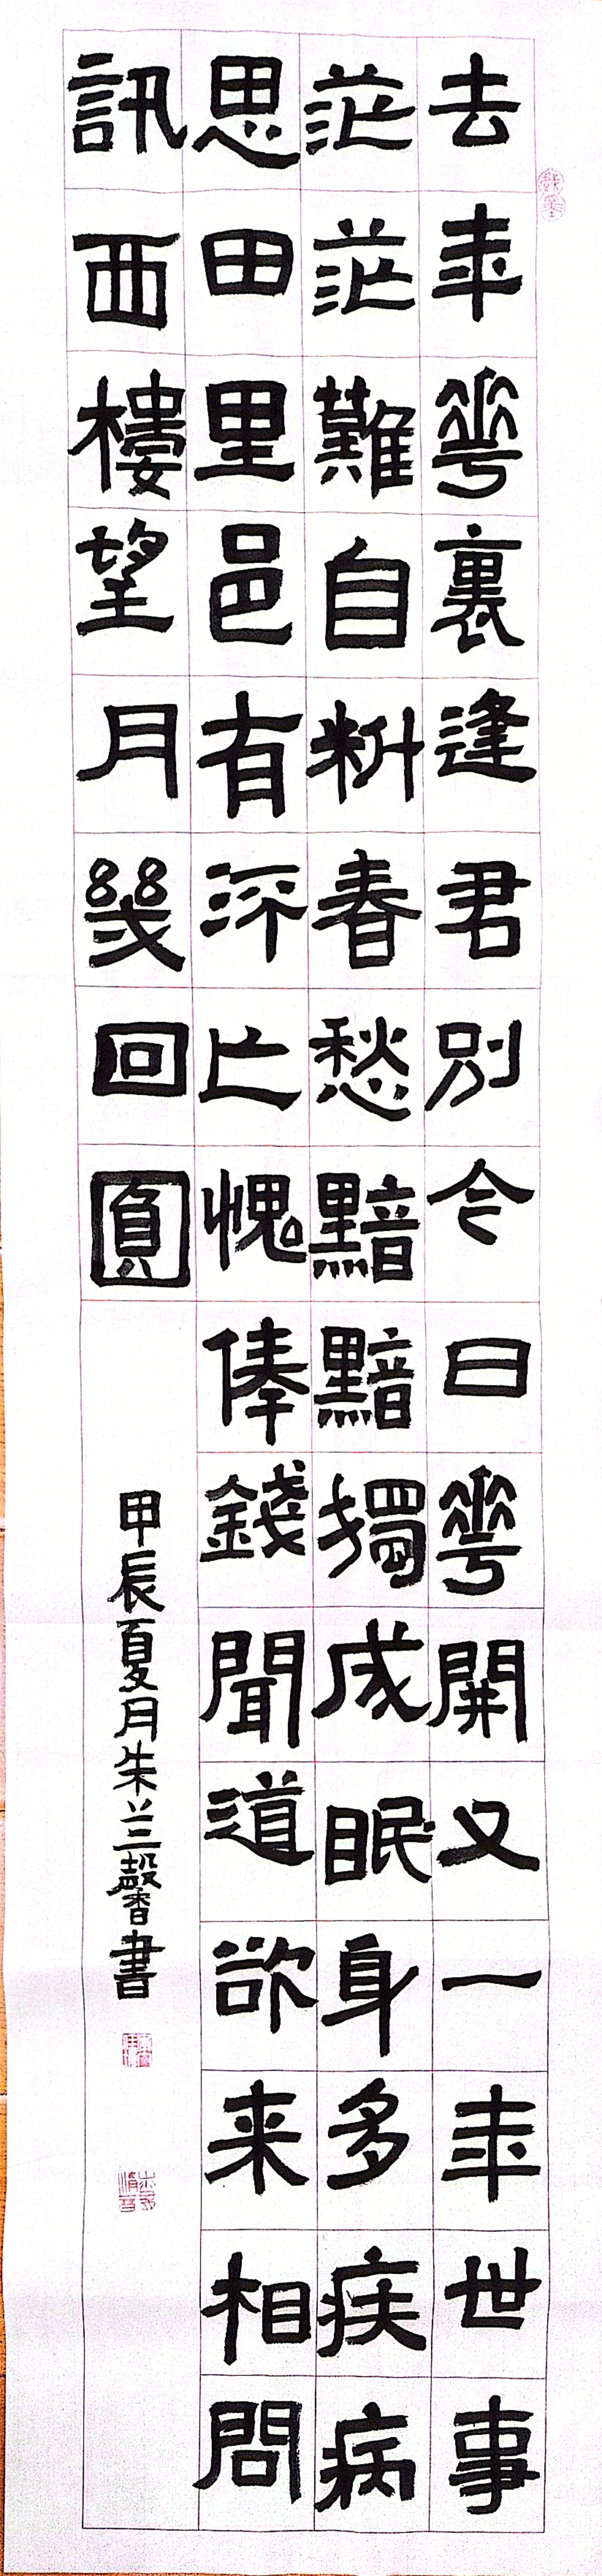 去年華裏逢君別今日華開又一年世事
茫茫難自料春愁黯黯獨成眠身多疾病
思田里邑有流亡愧俸錢聞道欲来相問
訊西樓望月幾回圓
甲辰夏月朱兰馨書